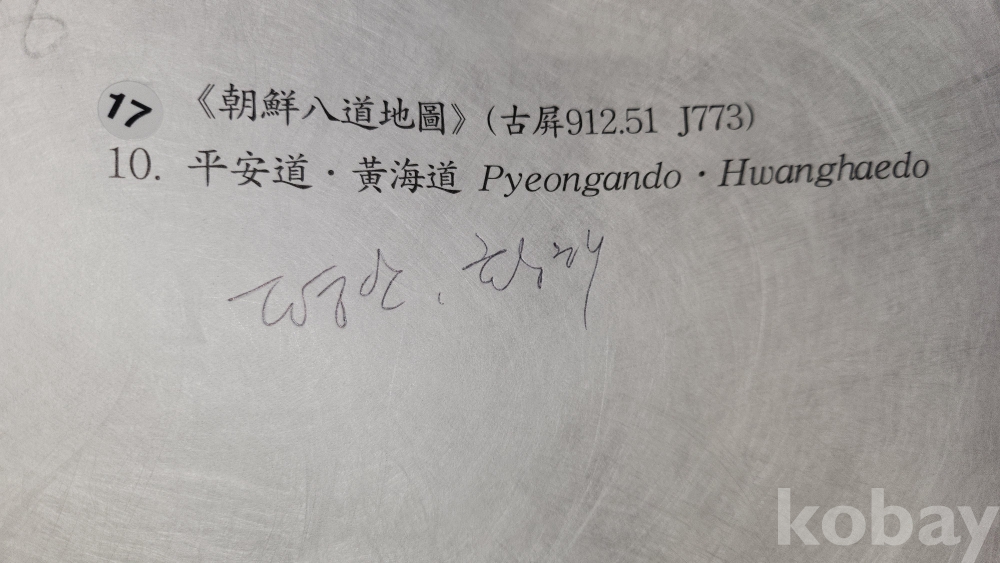 17 《朝鮮八道地圖》(古屛912.51 J773)
10. 平安道・黃海道 Pyeongando・Hwanghaedo
평안, 황해
kobay